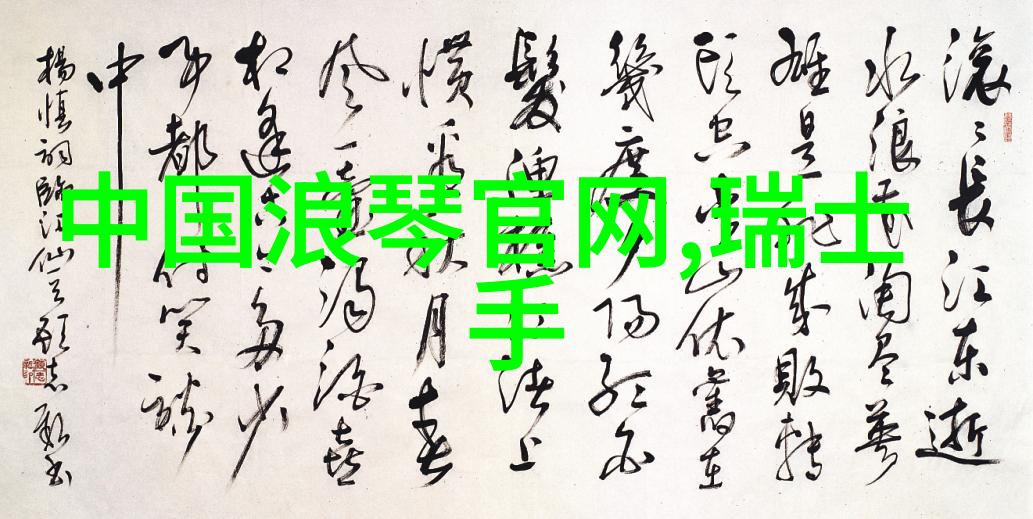 中国浪琴官网,瑞士
手
滚〻長江东逝
水浪花淘尽英
雄是非成败轉
头空青山依舊在
幾度夕阳红白
髮渔樵江渚上
惯看秋月春
风一壶浊酒喜
相逢古今多少
事都付笑谈
中
楊慎詞臨江仙